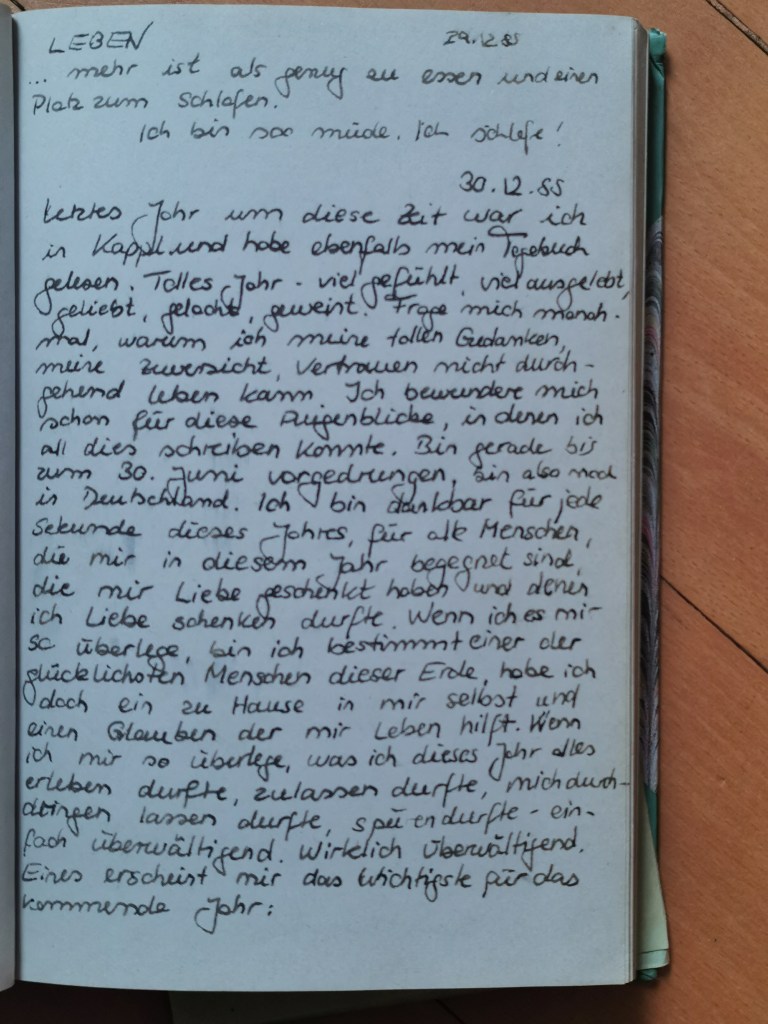 LEBEN 29.12.85
... mehr ist als genug zu essen und einen
Platz zum Schlafen.
Ich bin soo müde. Ich schlafe!
30.12.85
Letztes Jahr um diese Zeit war ich
in Kappl und habe ebenfalls mein Tagebuch
gelesen. Tolles Jahr - viel gefühlt, viel ausgelebt,
geliebt, gelacht, geweint. Frage mich manch-
mal, warum ich meine tollen Gedanken,
meine Zuversicht, Vertrauen nicht durch-
gehend leben kann. Ich bewundere mich
schon für diese Augenblicke, in denen ich
all dies schreiben konnte. Bin gerade bis
zum 30. Juni vorgedrungen, bin also noch
in Deutschland. Ich bin dankbar für jede
Sekunde dieses Jahres, für alle Menschen,
die mir in diesem Jahr begegnet sind,
die mir Liebe geschenkt haben und denen
ich Liebe schenken durfte. Wenn ich es mir
so überlege, bin ich bestimmt einer der
glücklichsten Menschen dieser Erde, habe ich
doch ein zu Hause in mir selbst und
einen Glauben der mir Leben hilft. Wenn
ich mir so überlege, was ich dieses Jahr alles
erleben durfte, zulassen durfte, mich durch-
dringen lassen durfte, spüren durfte - ein-
fach überwältigend. Wirklich überwältigend.
Eines erscheint mir das Wichtigste für das
kommende Jahr: